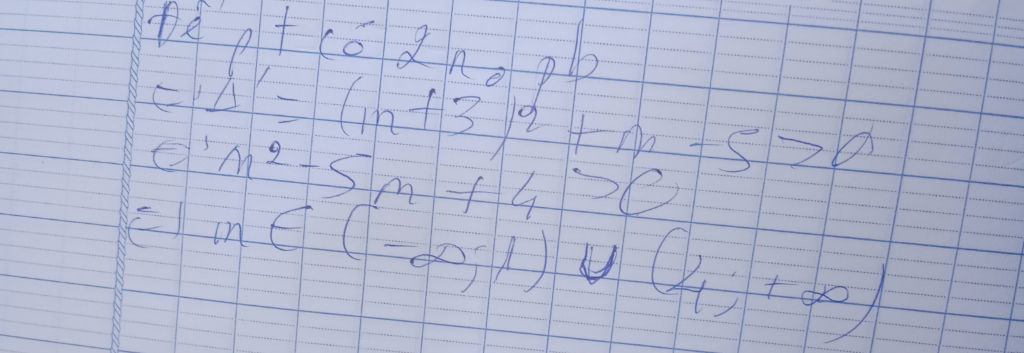 Để pt có 2 no pb
⇔ Δ' = (m+3)² + m - 5 > 0
⇔ m² - 5m + 4 > 0
⇔ m ∈ (-∞; 1) ∪ (4; +∞)